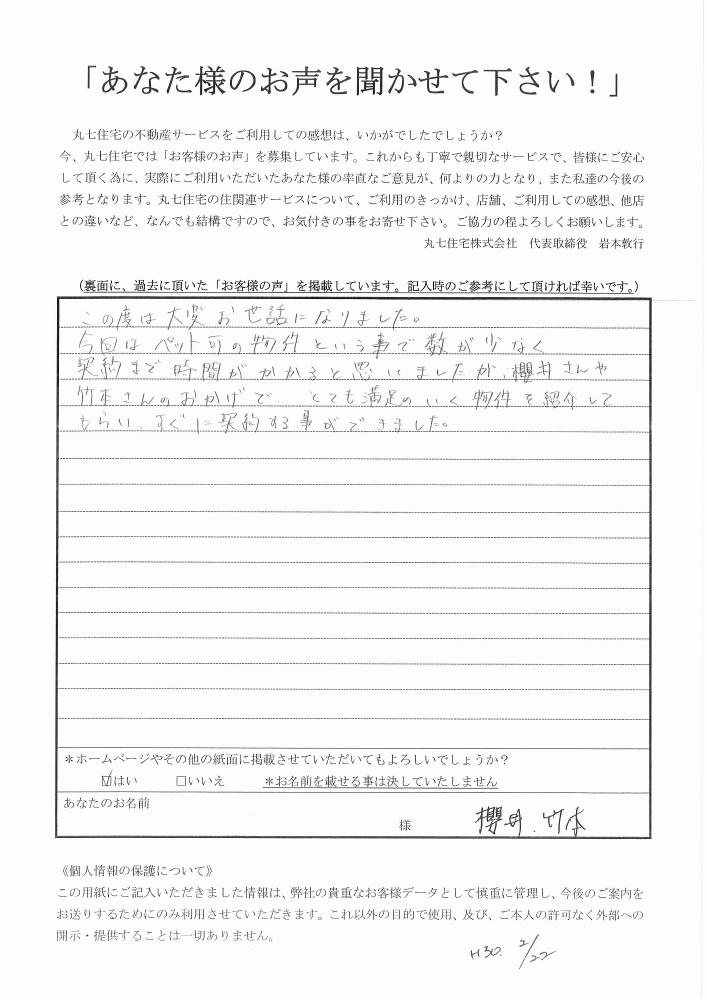 「あなた様のお声を聞かせて下さい！」
丸七住宅の不動産サービスをご利用しての感想は、いかがでしたでしょうか？
今、丸七住宅では「お客様のお声」を募集しています。これからも丁寧で親切なサービスで、皆様にご安心
して頂く為に、実際にご利用いただいたあなた様の率直なご意見が、何よりの力となり、また私達の今後の
参考となります。丸七住宅の住関連サービスについて、ご利用のきっかけ、店舗、ご利用しての感想、他店
との違いなど、なんでも結構ですので、お気付きの事をお寄せ下さい。ご協力の程よろしくお願いします。
丸七住宅株式会社　代表取締役　岩本敦行
（裏面に、過去に頂いた「お客様の声」を掲載しています。記入時のご参考にして頂ければ幸いです。）
この度は大変お世話になりました。
今回はペット可の物件という事で数が少なく
契約まで時間がかかると思いましたが、櫻井さんや
竹本さんのおかげで とても満足のいく物件を紹介して
もらい、すぐに契約する事ができました。
＊ホームページやその他の紙面に掲載させていただいてもよろしいでしょうか？
☑はい　□いいえ　＊お名前を載せる事は決していたしません
あなたのお名前
様 櫻井、竹本
《個人情報の保護について》
この用紙にご記入いただきました情報は、弊社の貴重なお客様データとして慎重に管理し、今後のご案内を
お送りするためにのみ利用させていただきます。これ以外の目的で使用、及び、ご本人の許可なく外部への
開示・提供することは一切ありません。
H30. 2/22